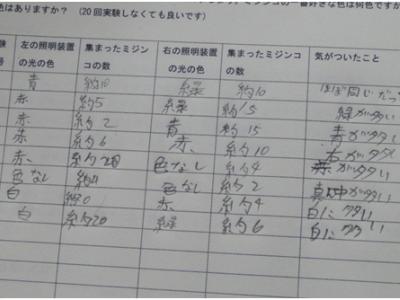 色はありますか？（20回実験しなくても良いです）
ミジンコの一番好きな色は何色ですか
号 左の照明装置の光の色 集まったミジンコの数 右の照明装置の光の色 集まったミジンコの数 気がついたこと
青 約10 緑 約10 ほぼ同じだっ
赤 約5 緑 約15 緑が多い
赤 約2 青 約15 青が多い
赤 約6 赤 約10 右が多い
赤 色なし 約4 赤が多い
色なし 色なし 約2 真中が多い
白 赤 約4 白に多い
白 約20 緑 約6 白に多い